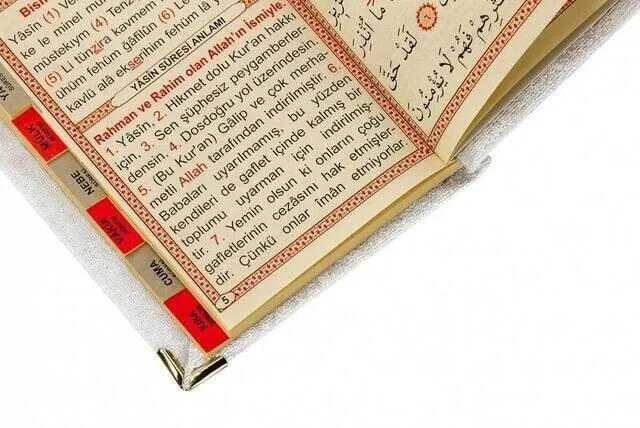 Bism
Yâsîn (1) Ve
ke le minel mü
müstekıym (4) Tenz
(5) Li tünzira kavmem
ühüm fehüm ğâfilûn (6) Le
kavlü alâ ekserihim fehüm lâ
YÂSİN SÛRESİ ANLAMI
Rahman ve Rahim olan Allah'ın İsmiyle.
1. Yâsin, 2. Hikmet dolu Kur'an hakkı
için. 3. Sen şüphesiz peygamberler-
densin. 4. Dosdoğru yol üzerindesin.
5. (Bu Kur'an) Gâlip ve çok merha-
metli Allah tarafından indirilmiştir. 6.
Babaları uyarılmamış, bu yüzden
kendileri de gaflet içinde kalmış bir
toplumu uyarman için indirilmiş-
tir. 7. Yemin olsun ki onların çoğu
gafletlerinin cezâsını hak etmişler-
dir. Çünkü onlar îmân etmiyorlar.
5
لَقَدْ حَقَّ
فَهُمْ لَا يُؤْمِنُونَ
YÂ
MÜLK
NEBE
VAKIA
CUMA
KISA